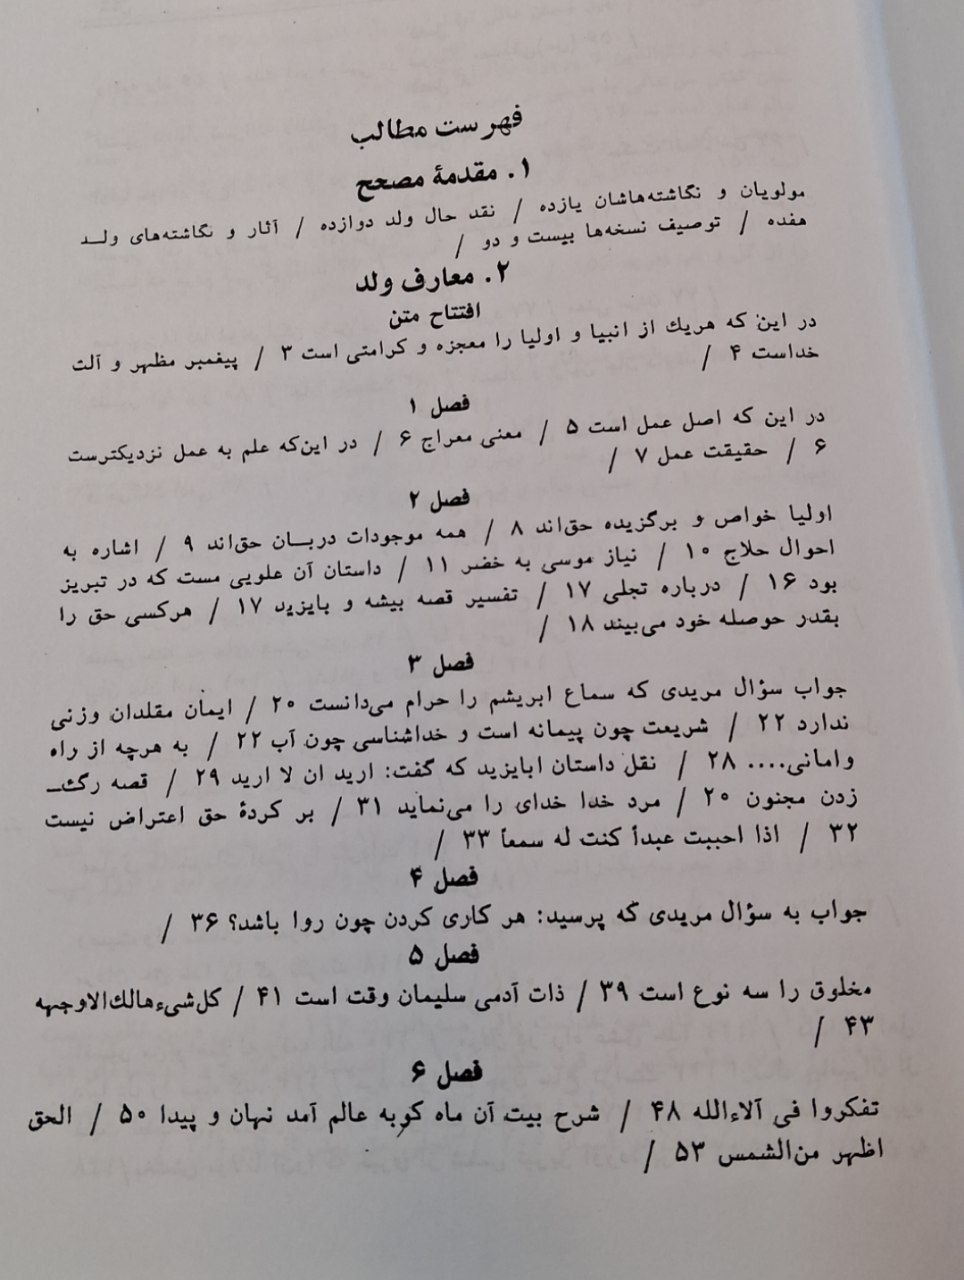 فهرست مطالب
۱. مقدمهٔ مصحح
مولویان و نگاشته‌هاشان یازده / نقد حال ولد دوازده / آثار و نگاشته‌های ولــد
هفده / توصیف نسخه‌ها بیست و دو /
۲. معارف ولد
افتتاح متن
در این که هریك از انبیا و اولیا را معجزه و کرامتی است ۳ / پیغمبر مظهر و آلت
خداست ۴ /
فصل ۱
در این که اصل عمل است ۵ / معنی معراج ۶ / در این‌که علم به عمل نزدیکترست
۶ / حقیقت عمل ۷ /
فصل ۲
اولیا خواص و برگزیده حق‌اند ۸ / همه موجودات دربــان حق‌اند ۹ / اشاره به
احوال حلاج ۱۰ / نیاز موسی به خضر ۱۱ / داستان آن علویی مست که در تبریز
بود ۱۶ / درباره تجلی ۱۷ / تفسیر قصه بیشه و بایزید ۱۷ / هرکسی حق را
بقدر حوصله خود می‌بیند ۱۸ /
فصل ۳
جواب سؤال مریدی که سماع ابریشم را حرام می‌دانست ۲۰ / ایمان مقلدان وزنی
ندارد ۲۲ / شریعت چون پیمانه است و خداشناسی چون آب ۲۲ / به هرچه از راه
وامانی.... ۲۸ / نقل داستان ابایزید که گفت: ارید ان لا ارید ۲۹ / قصه رگ‌ـ
زدن مجنون ۲۰ / مرد خدا خدای را می‌نماید ۳۱ / بر کردهٔ حق اعتراض نیست
۳۲ / اذا احببت عبداً کنت له سمعاً ۳۳ /
فصل ۴
جواب به سؤال مریدی که پرسید: هر کاری کردن چون روا باشد؟ ۳۶ /
فصل ۵
مخلوق را سه نوع است ۳۹ / ذات آدمی سلیمان وقت است ۴۱ / کل‌شیءهالك‌الاوجهه
۴۳ /
فصل ۶
تفکروا فی آلاءالله ۴۸ / شرح بیت آن ماه کوبه عالم آمد نهان و پیدا ۵۰ / الحق
اظهر من‌الشمس ۵۳ /